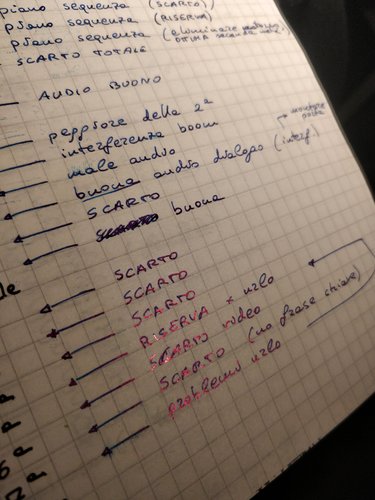 piano sequenza (SCARTO)
piano sequenza (RISERVA)
piano sequenza (eliminare
OTTIMA seconda metà)
SCARTO TOTALE
AUDIO BUONO
peggiore della 2ª
interferenza boom
male audio
buona audio dialogo (interf.)
→ montare
SCARTO
buona
SCARTO
SCARTO
SCARTO
RISERVA x urlo
SCARTO video
SCARTO (no frase chiave)
problema urlo